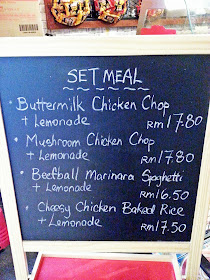 SET MEAL
• Buttermilk Chicken Chop
+ Lemonade RM 17.80
• Mushroom Chicken Chop
+ Lemonade RM 17.80
• Beefball Marinara Spaghetti
+ Lemonade RM 16.50
• Cheesy Chicken Baked Rice
+ Lemonade RM 17.50